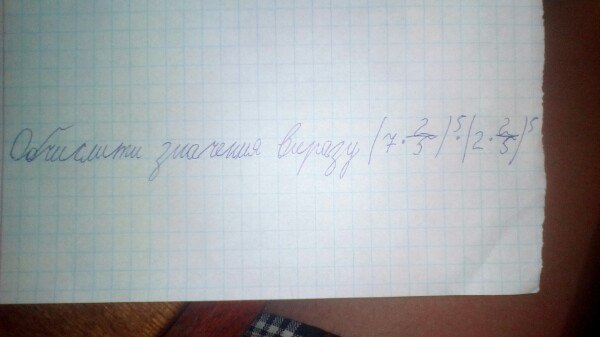 Обчислити значення виразу (7·2/5)⁵·(2·2/5)⁵